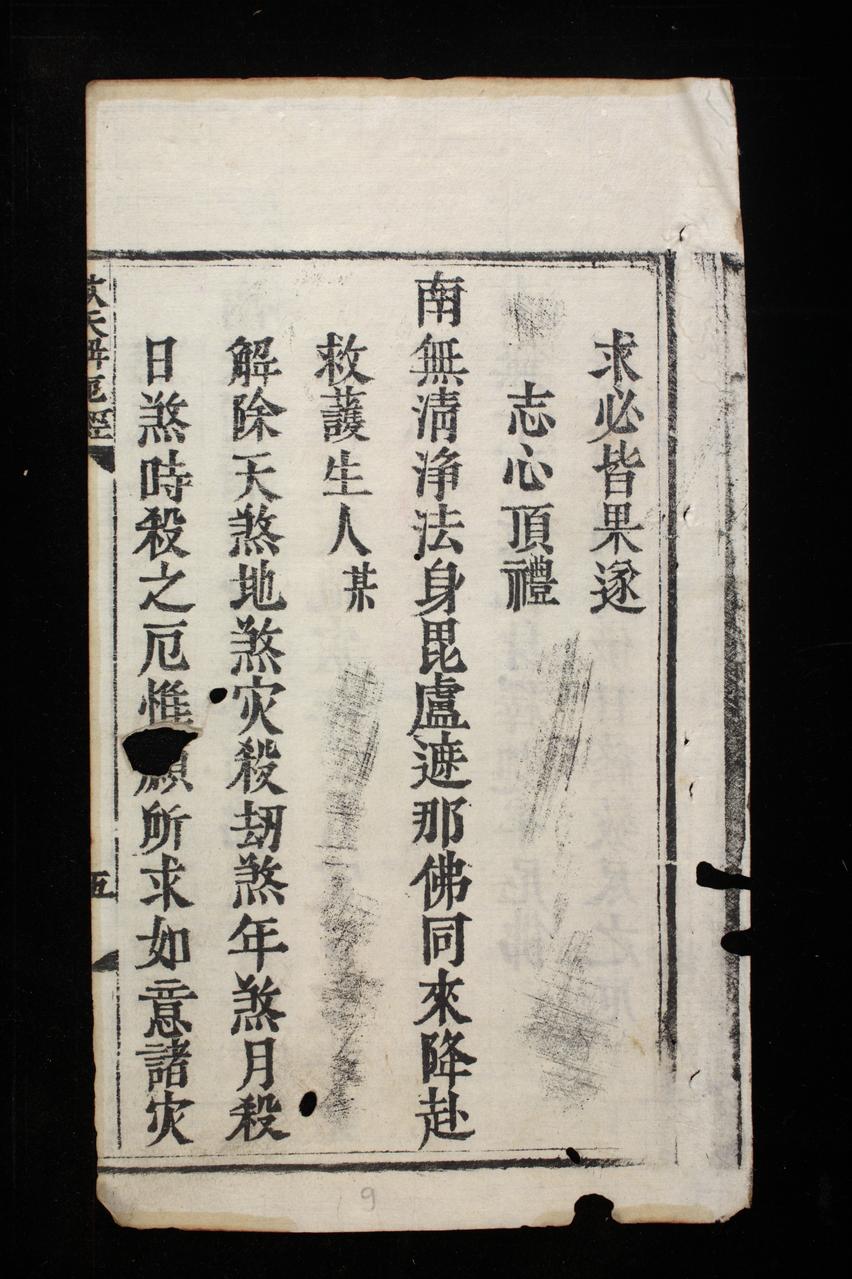 求必皆果遂
志心頂禮
南無清淨法身毘盧遮那佛同來降赴
救護生人某
解除天煞地煞灾殺刼煞年煞月殺
日煞時殺之厄惟願所求如意諸灾
天解厄經
五
9